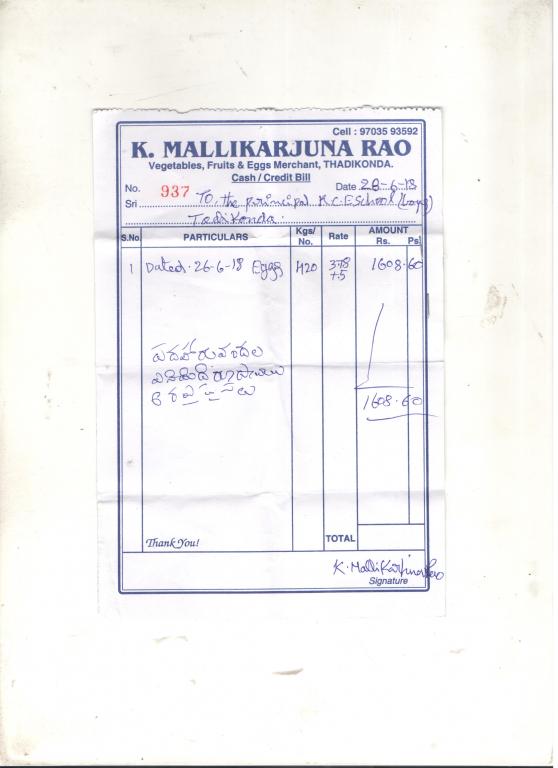 Cell : 97035 93592
K. MALLIKARJUNA RAO
Vegetables, Fruits & Eggs Merchant, THADIKONDA.
Cash / Credit Bill
No. 937 Date 28-6-18
Sri To, the principal K.C.E School (boys)
Tadikonda.
S.No. PARTICULARS Kgs/ No. Rate AMOUNT Rs. Ps.
1 Dated. 26-6-18 Eggs 420 1608.60
పదహారువందల
ఎనిమిది రూపాయలు
1608.60
Thank You! TOTAL
K. Mallikarjuna Rao
Signature